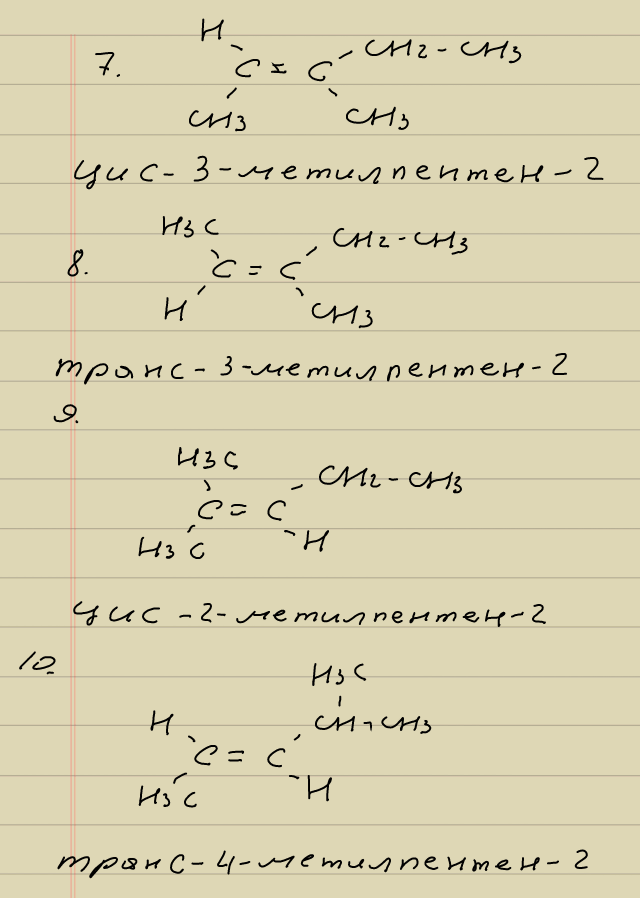 7.
H
C = C
CH2 - CH3
CH3
CH3
цис - 3 - метилпентен - 2
8.
H3C
C = C
CH2 - CH3
H
CH3
транс - 3 - метилпентен - 2
9.
H3C
C = C
CH2 - CH3
H3C
H
цис - 2 - метилпентен - 2
10.
H3C
H
CH - CH3
C = C
H3C
H
транс - 4 - метилпентен - 2